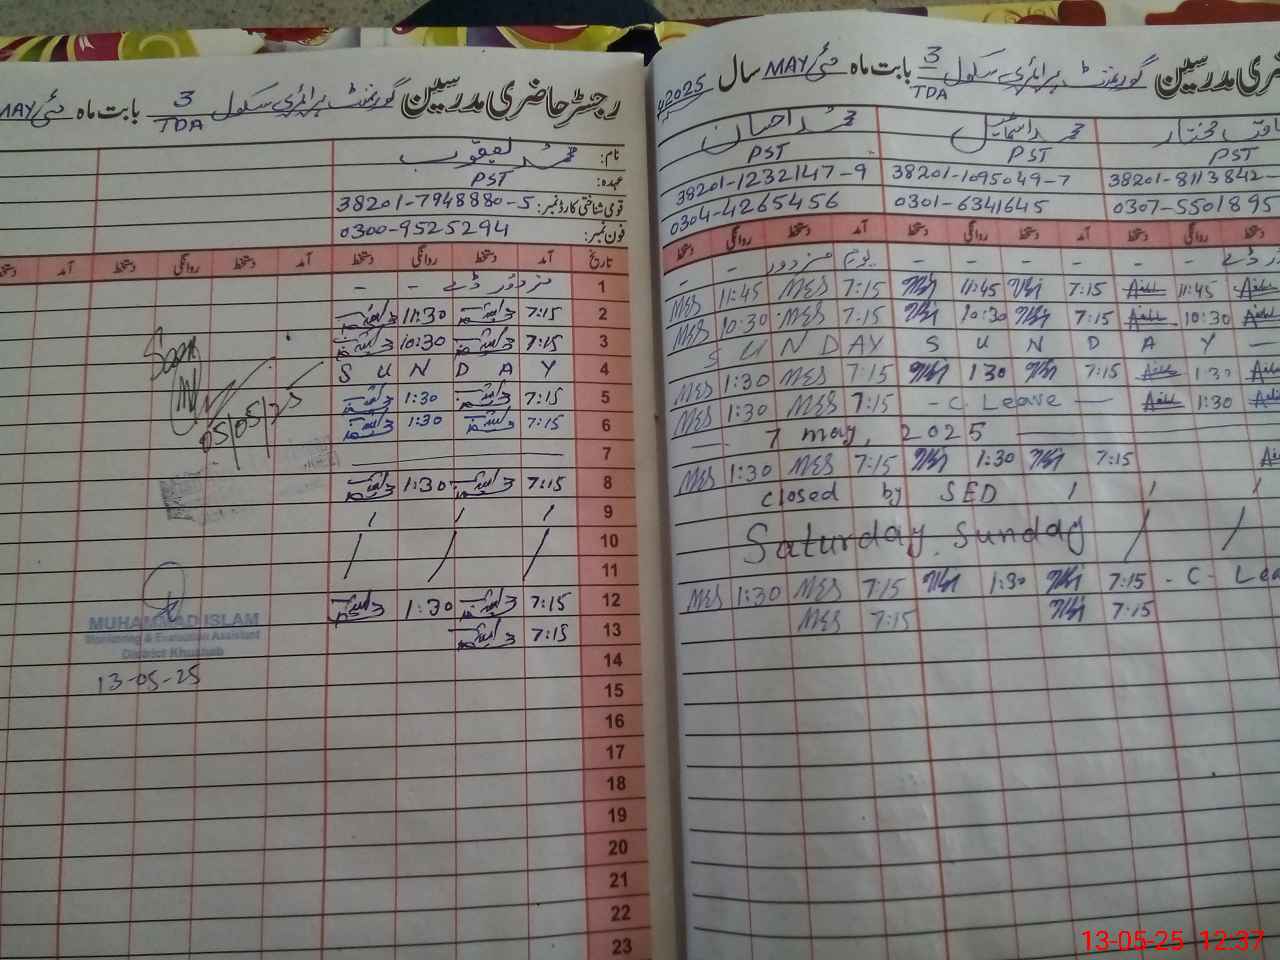 رجسٹر حاضری مدرسین گورنمنٹ پرائمری سکول 3/TDA بابت ماہ مئی MAY
نام: محمد یعقوب
عہدہ: PST
قومی شناختی کارڈ نمبر: 38201-7948880-5
فون نمبر: 0300-9525294
تاریخ آمد دستخط روانگی دستخط آمد دستخط روانگی دستخط آمد دستخط
1 مزدور ڈے - -
2 7:15 11:30
3 7:15 10:30
4 S U N D A Y
5 7:15 1:30
6 7:15 1:30
7
8 7:15 1:30
9
10
11
12 7:15 1:30
13 7:15
14
15
16
17
18
19
20
21
22
23
05/05/25
MUHAMMAD ISLAM
Monitoring & Evaluation Assistant
District Khushab
13-05-25
گورنمنٹ پرائمری سکول 3/TDA بابت ماہ مئی MAY سال 2025
مختار محمد اسماعیل محمد احسان
PST PST PST
38201-8113842- 38201-1095049-7 38201-1232147-9
0307-5501895 0301-6341645 0304-4265456
دستخط روانگی دستخط آمد دستخط روانگی دستخط آمد دستخط روانگی دستخط
ڈے - - - - - - یوم مزدور - -
MES 11:45 MES 7:15 11:45 7:15 11:45
MES 10:30 MES 7:15 10:30 7:15 10:30
S U N D A Y S U N D A Y —
MES 1:30 MES 7:15 1:30 7:15 1:30
MES 1:30 MES 7:15 - C. Leave — 1:30
7 may, 2025
MES 1:30 MES 7:15 1:30 7:15
closed by SED
Saturday. Sunday
MES 1:30 MES 7:15 1:30 7:15 - C - Lea
MES 7:15 7:15
13-05-25 12:37